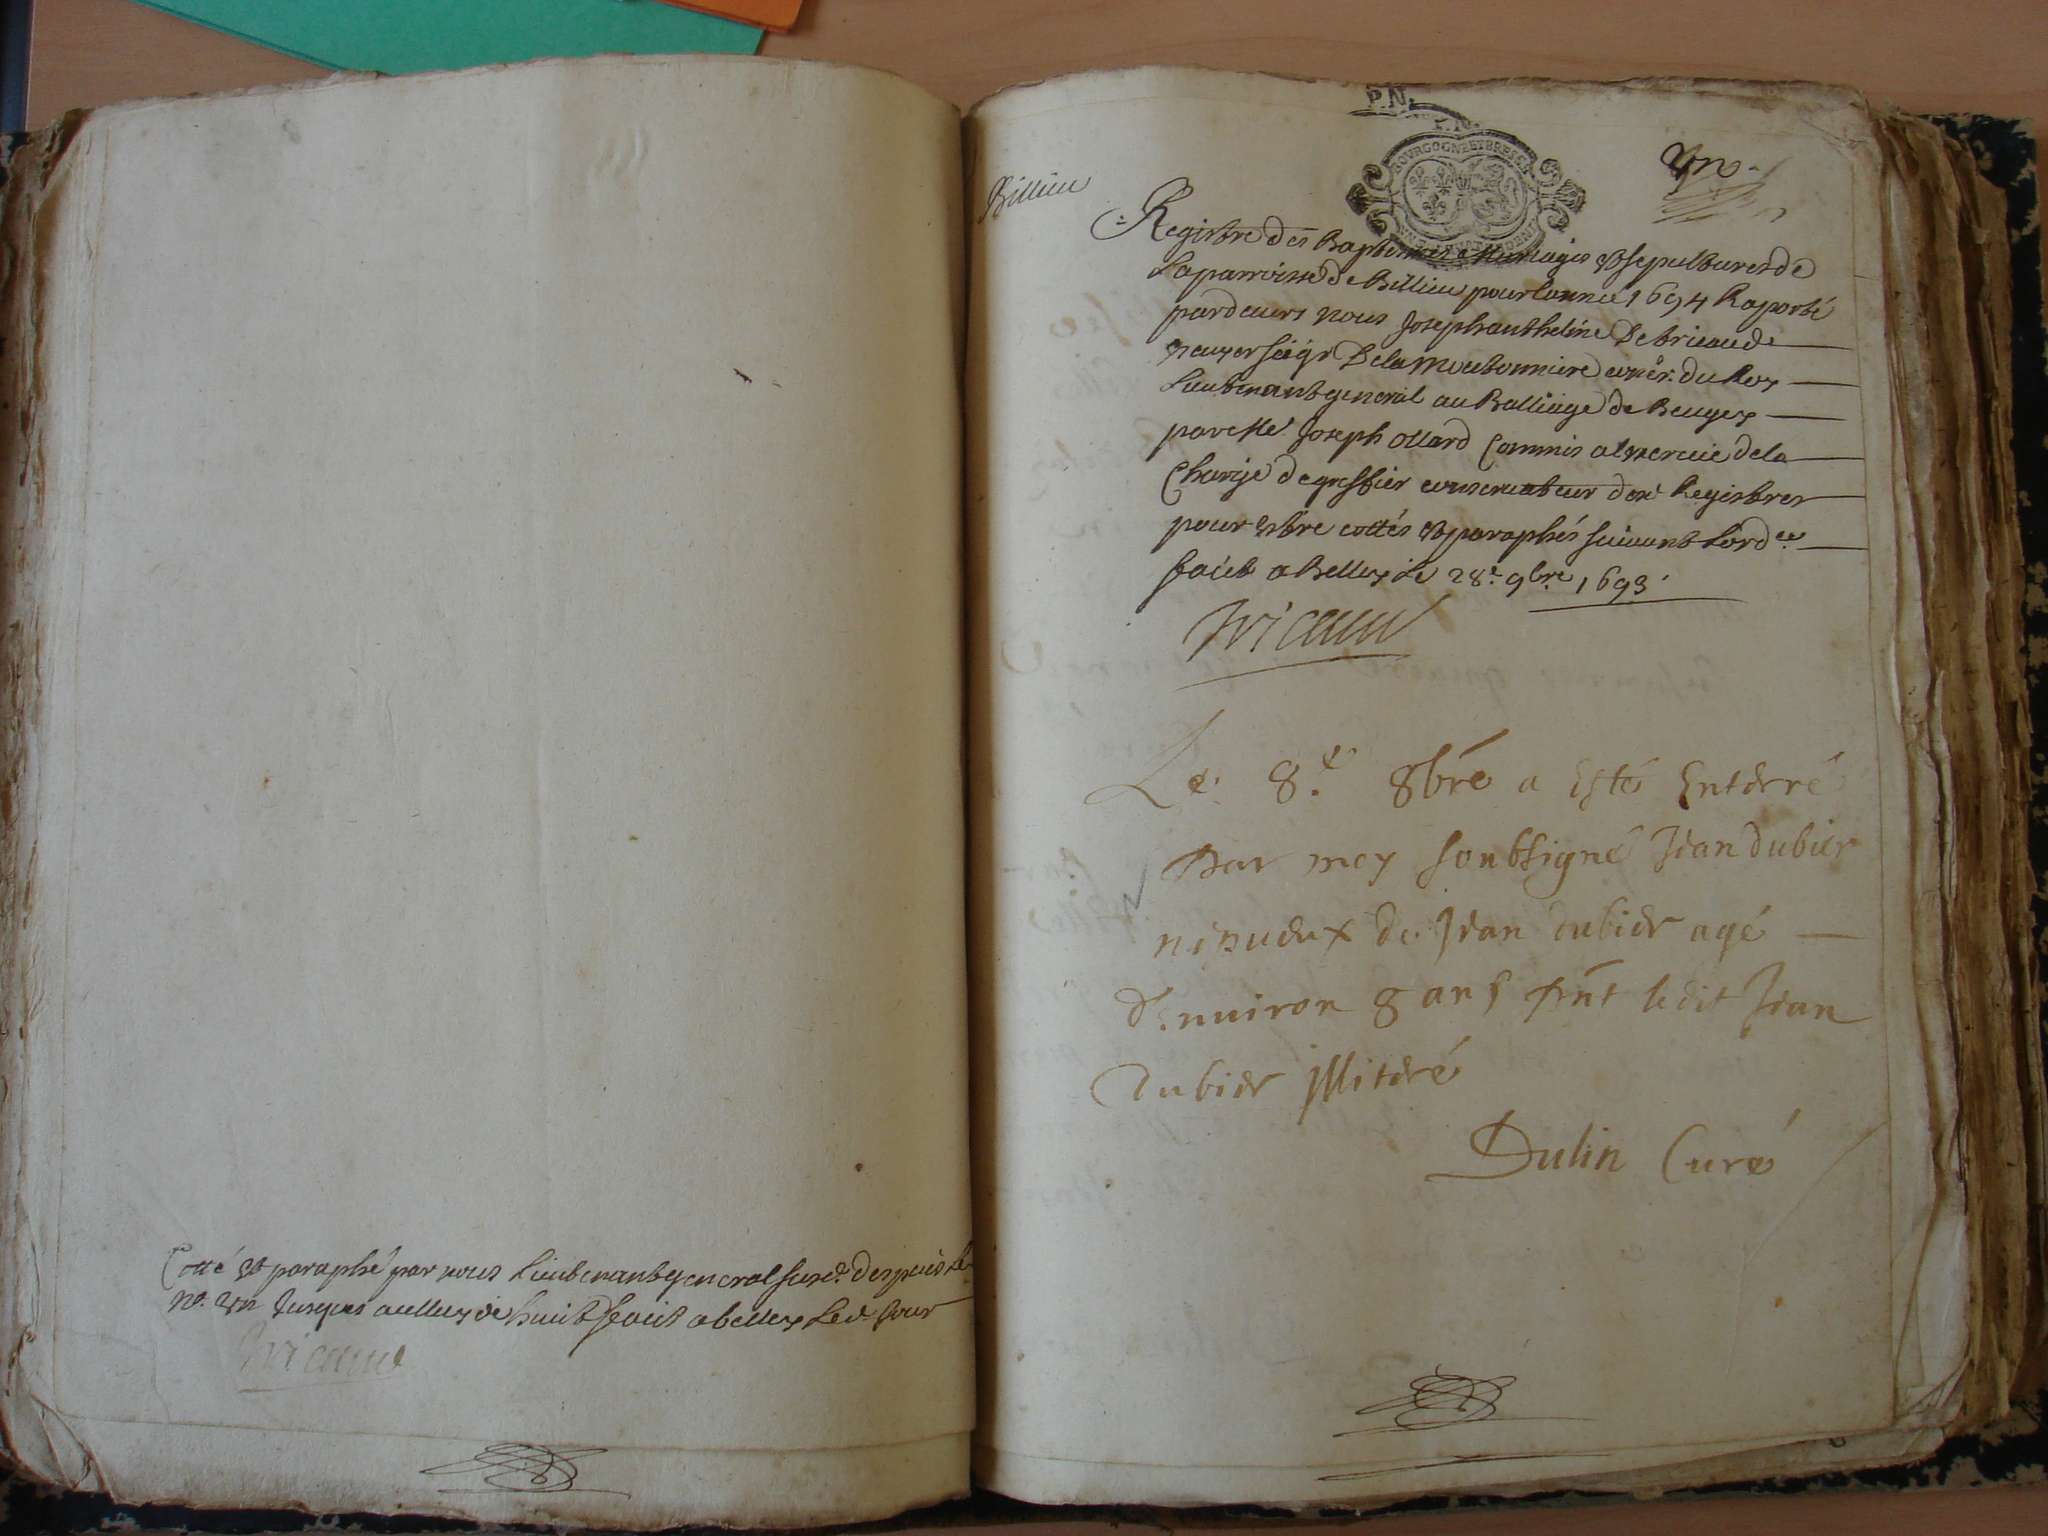 Cotté et paraphé par nous Lieutenant general susd. despuis le
No. un jusques a celluy de huict faict a belley led. jour
Billieu
P.N.
BOURGOGNE ET BRESSE
un
Registre des Baptesmes Mariages et sepultures de
La parroisse de Billieu pour lannee 1694 Raporté
pardevers nous Joseph anthelme
seigr De la
Lieutenant general au Balliage de Beugey
par Me Joseph ollard Commis a lexercice de la
Charge de greffier conservateur desd Registres
pour estre cottés et paraphés suivant Lordce
faict a Belley Le 28e 9bre 1693
Le 8e 8bre a esté Enterré
Par moy soubsigné Jean dubier
nepueux de Jean dubier agé
d'enuiron 8 ans pnt ledit Jean
dubier illiteré
Dulin Curé